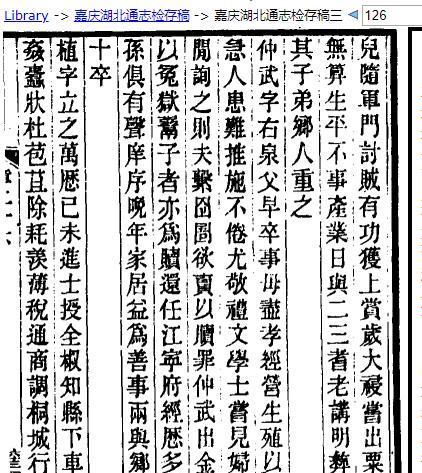 Library -> 嘉庆湖北通志检存稿 -> 嘉庆湖北通志检存稿三
126
兒隨軍門討賊有功獲上賞歲大祲嘗出粟
無算生平不事產業日與二三耆老講明彜
其子弟鄉人重之
仲武字右泉父早卒事母盡孝經營生殖以
急人患難推施不倦尤敬禮文學士嘗見婦
閒詢之則夫繫囹圄欲賣以贖罪仲武出金
以冤獄鬻子者亦爲贖還任江寧府經歷多
孫俱有聲庠序晩年家居益爲善事兩與鄉
十卒
植字立之萬歷已未進士授全椒知縣下車
姦蠹狀杜苞苴除耗羨薄稅通商調桐城行